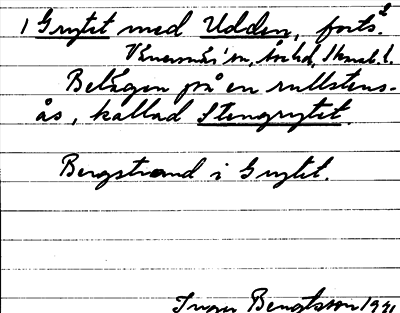 1 Grytet med Udden, forts. 2
Belägen på en rullstens-
ås, kallad Stengrytet.
Bergstrand i Grytet.
Inger Bengtsson 1931